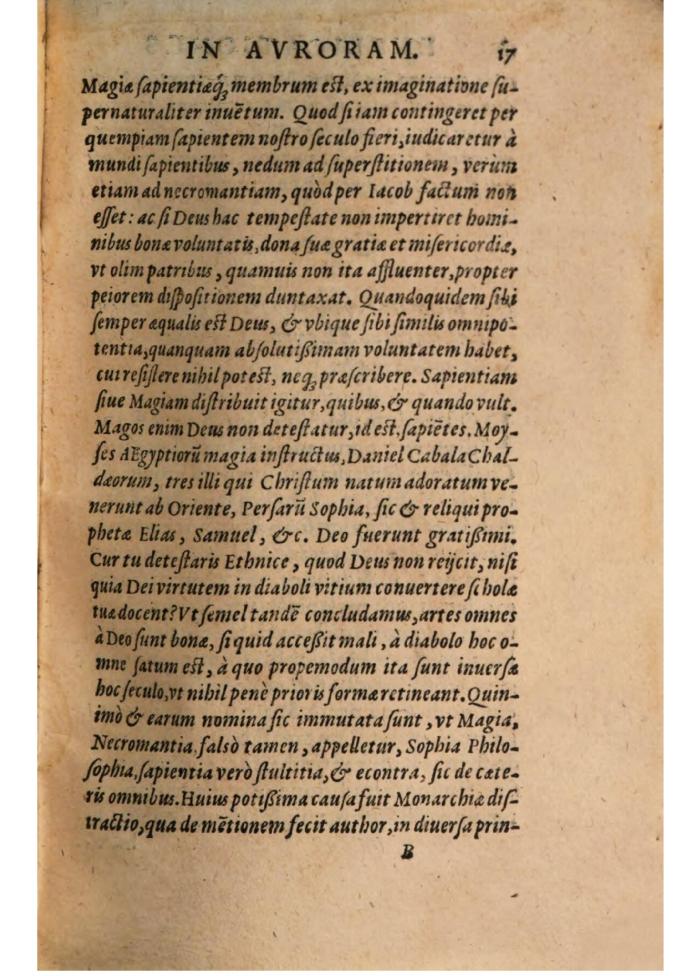 IN AVRORAM. 17
Magiæ ſapientiæq́ꝫ membrum est, ex imaginatione ſu-
pernaturaliter inuẽtum. Quod ſi iam contingeret per
quempiam ſapientem noſtro ſeculo fieri, iudicaretur à
mundi ſapientibus, nedum ad ſuperſtitionem, verùm
etiam ad necromantiam, quòd per Iacob factum non
eſſet: ac ſi Deus hac tempeſtate non impertiret homi-
nibus bonæ voluntatis, dona ſuæ gratiæ et miſericordiæ,
vt olim patribus, quamuis non ita affluenter, propter
peiorem diſpoſitionem duntaxat. Quandoquidem ſibi
ſemper æqualis est Deus, & vbique ſibi ſimilis omnipo-
tentia, quanquam abſolutißimam voluntatem habet,
cui reſiſtere nihil potest, neqꝫ præſcribere. Sapientiam
ſiue Magiam diſtribuit igitur, quibus, & quando vult.
Magos enim Deus non deteſtatur, id est, ſapiẽtes. Moy-
ſes AEgyptiorũ magia inſtructus, Daniel Cabala Chal-
dæorum, tres illi qui Chriſtum natum adoratum ve-
nerunt ab Oriente, Perſarũ Sophia, ſic & reliqui pro-
phetæ Elias, Samuel, &c. Deo fuerunt gratißimi.
Cur tu deteſtaris Ethnice, quod Deus non reijcit, niſi
quia Dei virtutem in diaboli vitium conuertere ſcholæ
tuæ docent? Vt ſemel tandẽ concludamus, artes omnes
à Deo ſunt bonæ, ſi quid acceßit mali, à diabolo hoc o-
mne ſatum est, à quo propemodum ita ſunt inuerſæ
hoc ſeculo, vt nihil penè prioris formæ retineant. Quin-
imò & earum nomina ſic immutata ſunt, vt Magia,
Necromantia, falsò tamen, appelletur, Sophia Philo-
ſophia, ſapientia verò ſtultitia, & econtra, ſic de cæte-
ris omnibus. Huius potißima cauſa fuit Monarchiæ diſ-
tractio, qua de mẽtionem fecit author, in diuerſa prin-
B